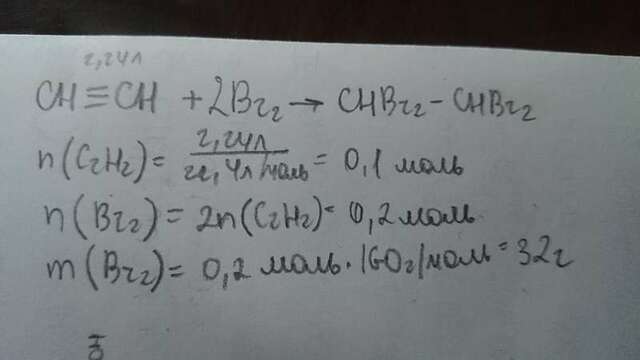 2,24л
CH≡CH + 2Br₂ → CHBr₂ - CHBr₂
n(C₂H₂) = 2,24л / 22,4л/моль = 0,1 моль
n(Br₂) = 2n(C₂H₂) = 0,2 моль
m(Br₂) = 0,2 моль · 160г/моль = 32г